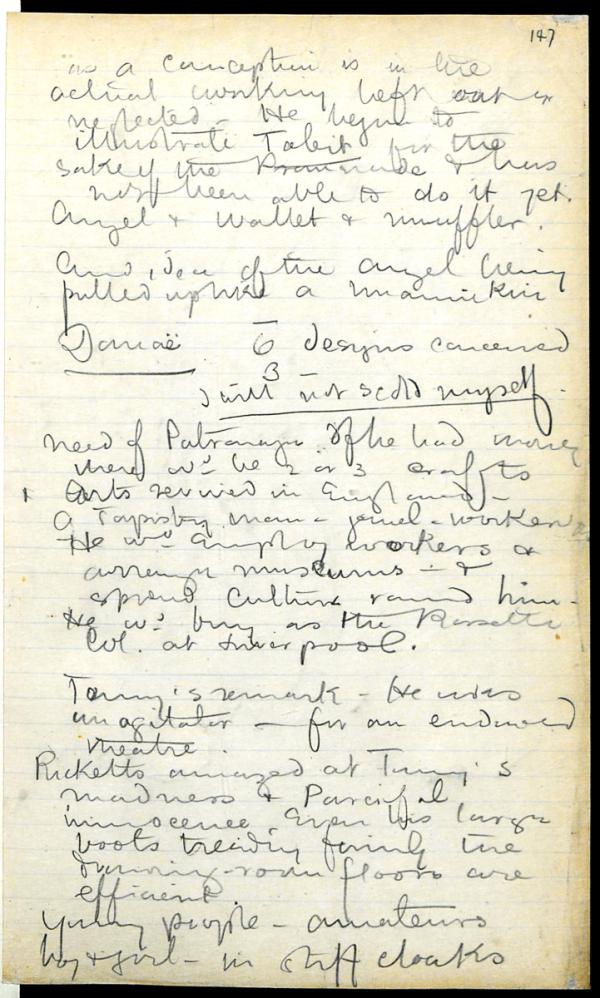 147
as a conception is in the
actual working left out or
neglected - He began to
illustrate Tobit for the
sake of the Promenade & has
not been able to do it yet.
Angel & wallet & muffler.
And idea of the angel being
pulled up like a mannikin
Danaë 6 designs conceived
3
I will not scold myself.
need of Patronage. If he had money
there wd. be 2 or 3 crafts
& Arts revived in England -
a Tapistry man - jewel-worker
He wd. employ workers &
arrange museums - &
spread culture round him -
He wd. buy as the Rossetti
Col. at Liverpool.
Tommy's remark - He was
an agitator - for an endowed
theatre.
Ricketts amazed at Tommy's
madness & Parsifal,
innocence. Even his large
boots treading firmly the
drawing-room floors are
efficient.
Young people - amateurs
boy & girl - in stiff cloaks